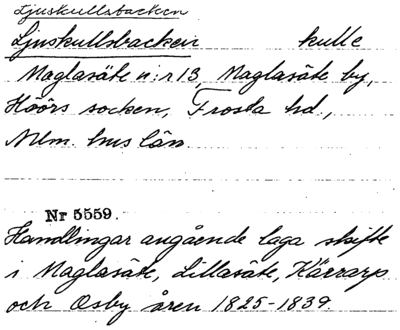 Ljuskullsbacken
Ljuskullsbacken kulle
Maglasäte n:r 13, Maglasäte by,
Höörs socken, Frosta hd.,
Mlm. hus län
Nr 5559.
Handlingar angående laga skifte
i Maglasäte, Lillasäte, Kärrarp
och Osby åren 1825-1839